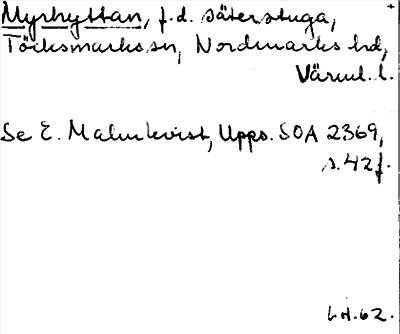 Myrhyttan, f.d. säterstuga,
Töcksmarks sn, Nordmarks hd,
Värml. l.
Se E. Malmkvist, Upps. SOA 2369,
s. 42 f.